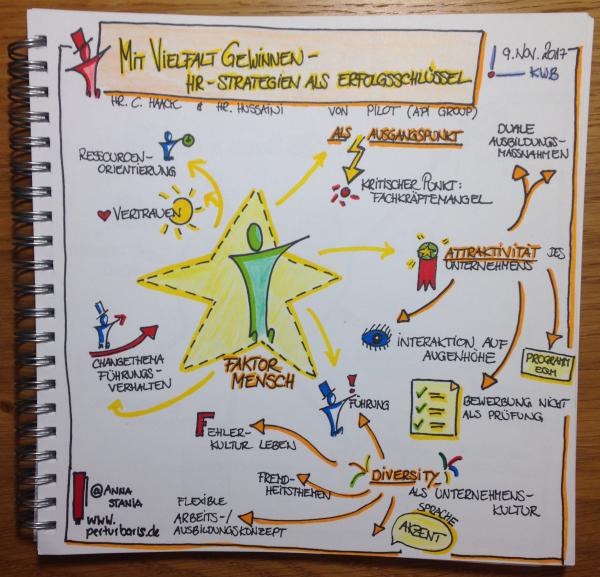 MIT VIELFALT GEWINNEN -
HR-STRATEGIEN ALS ERFOLGSSCHLÜSSEL
9. NOV. 2017
KWB
HR. C. HAACK & HR. HUSSAINI VON PILOT (API GROUP)
RESSOURCEN-
ORIENTIERUNG
ALS AUSGANGSPUNKT
KRITISCHER PUNKT:
FACHKRÄFTEMANGEL
DUALE
AUSBILDUNGS-
MASSNAHMEN
VERTRAUEN
ATTRAKTIVITÄT DES
UNTERNEHMENS
INTERAKTION AUF
AUGENHÖHE
PROGRAMM
BEWERBUNG NICHT
ALS PRÜFUNG
CHANGETHEMA
FÜHRUNGS-
VERHALTEN
FAKTOR
MENSCH
FÜHRUNG
FEHLER-
KULTUR LEBEN
DIVERSITY
ALS UNTERNEHMENS-
KULTUR
FREMD-
HEITSTHEMEN
FLEXIBLE
ARBEITS-/
AUSBILDUNGSKONZEPT
SPRACHE
AKZENT
@ANNA
STANIA
www.
perturbaris.de